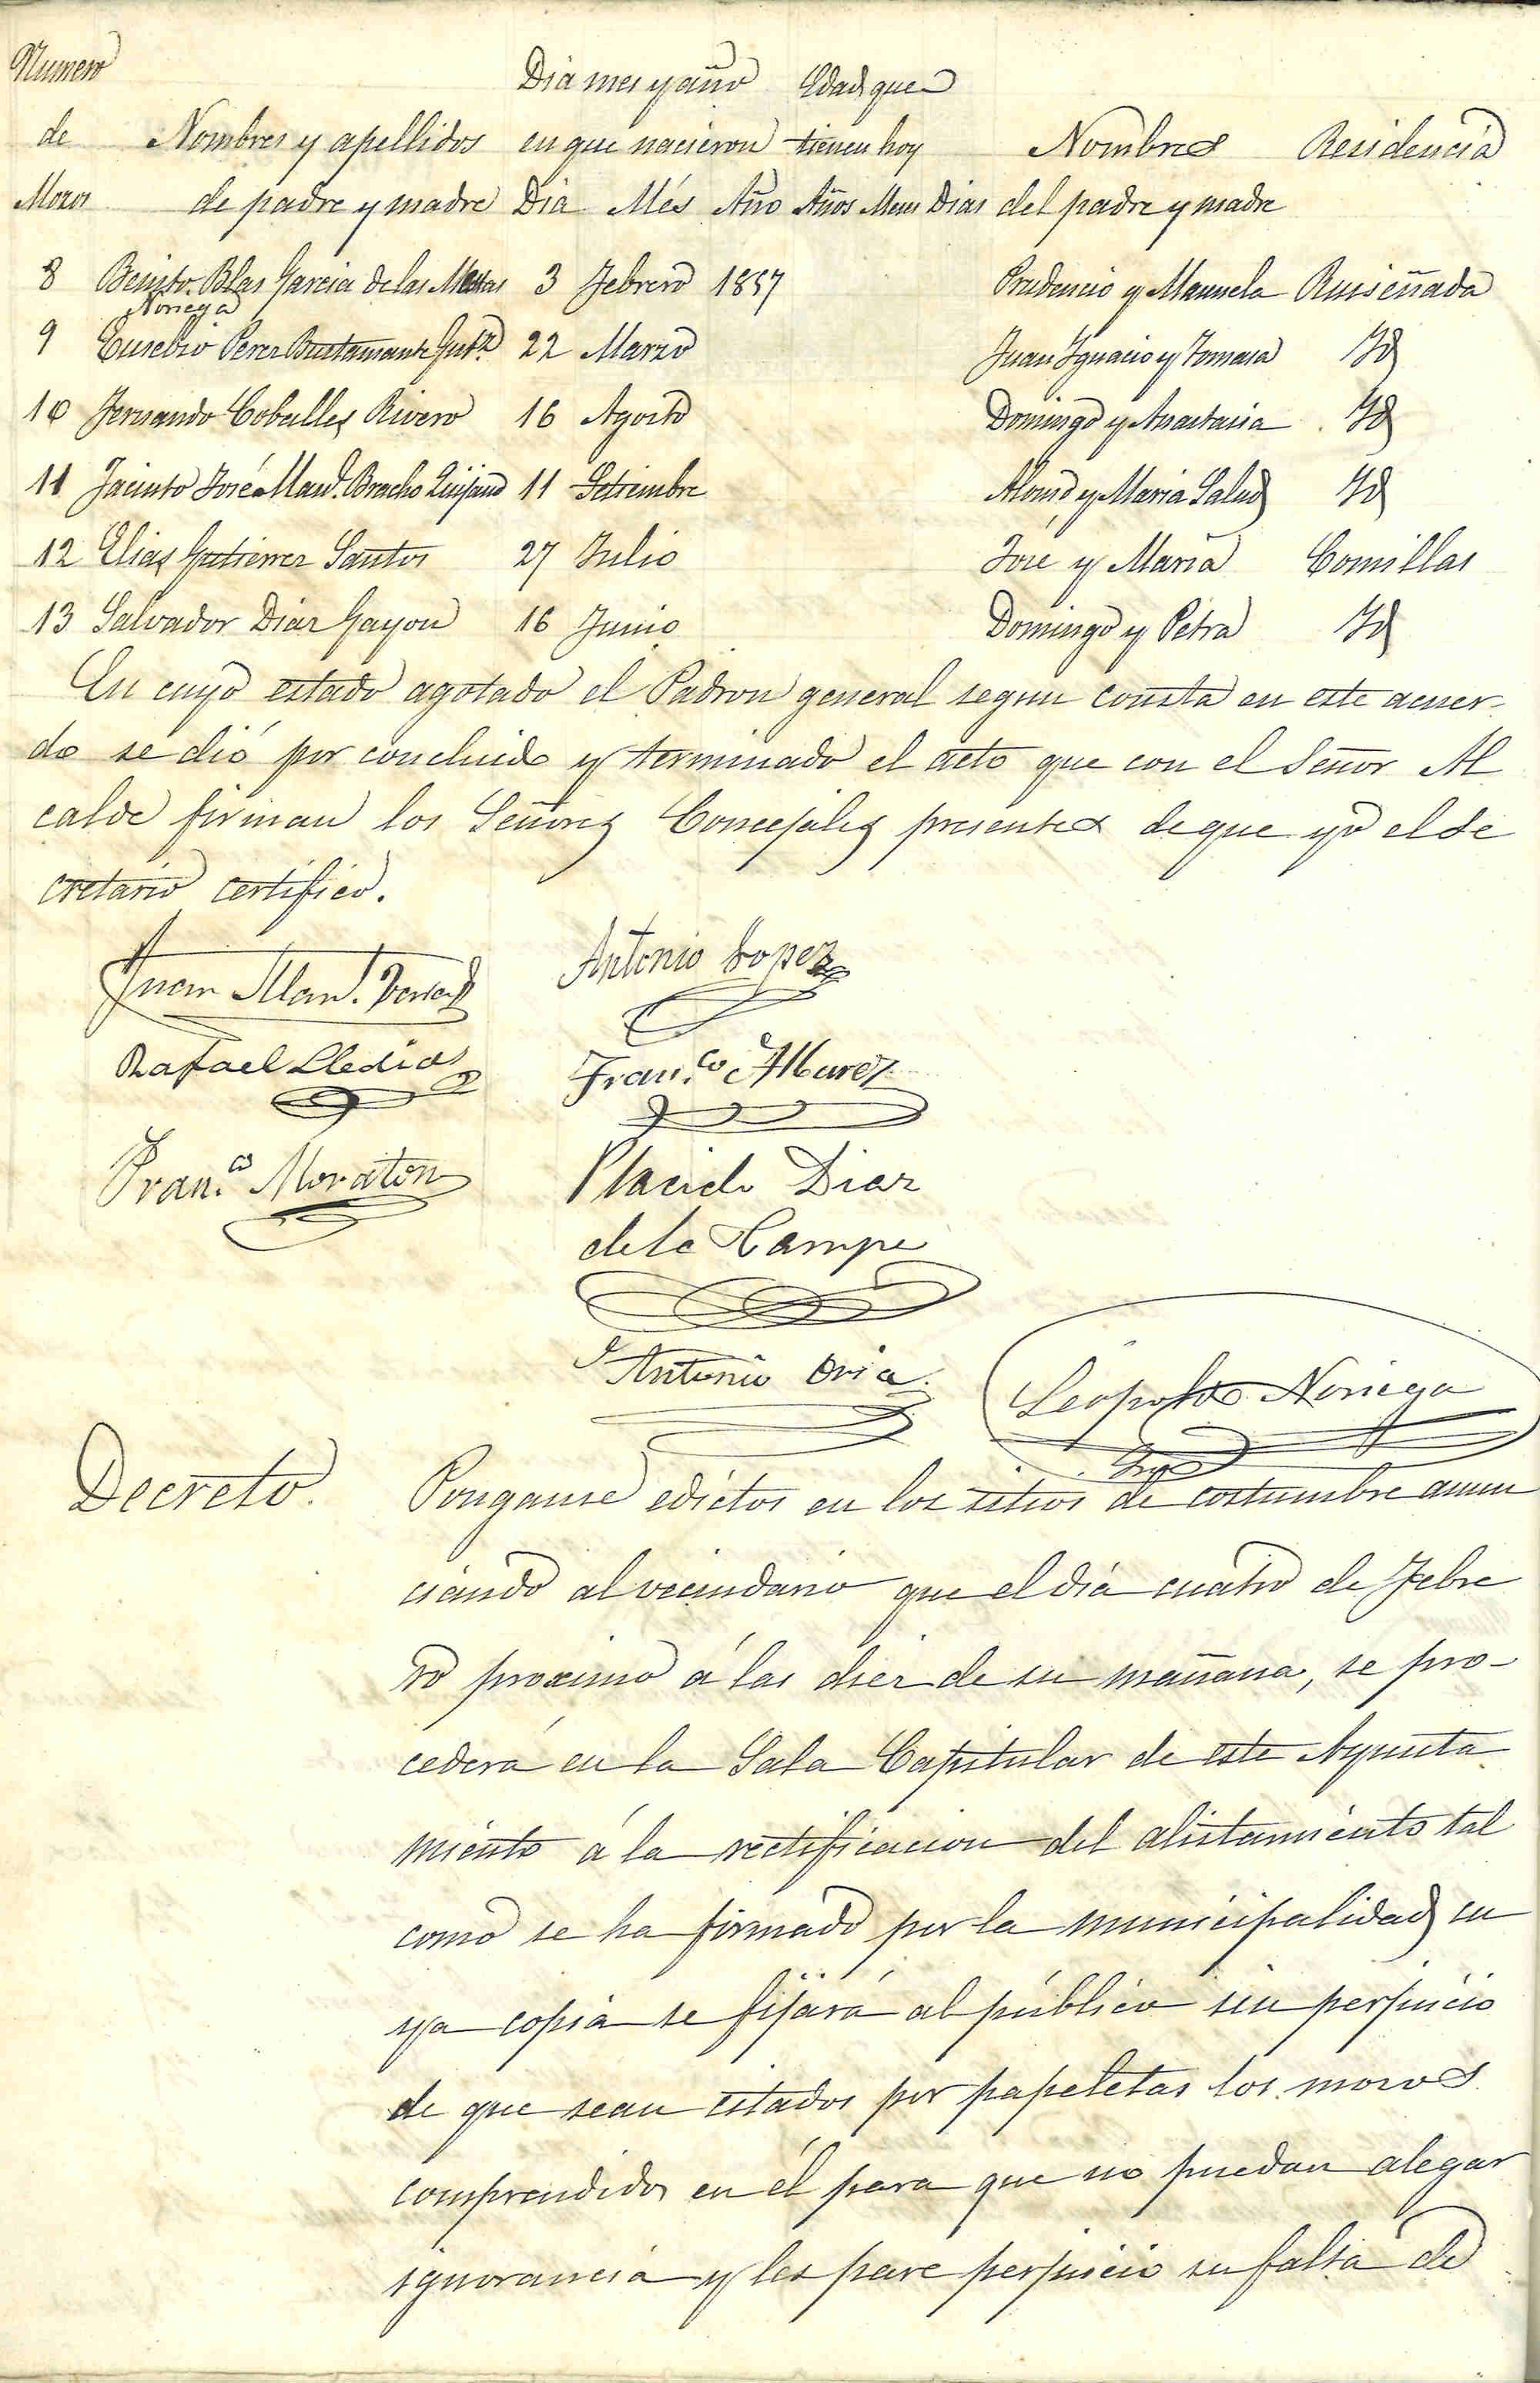 Numero Dia mes y año Edad que
de Nombres y apellidos en que nacieron tienen hoy Nombres Residencia
Mozos de padre y madre Dia Més Año Años Meses Dias del padre y madre
8 Benito Blas Garcia de las Mestas 3 Febrero 1857 Prudencio y Manuela Ruiseñada
Noriega
9 Eusebio Perez Bustamante Gutz 22 Marzo Juan Ignacio y Tomasa Id
10 Fernando Coballes Rivero 16 Agosto Domingo y Anastasia Id
11 Jacinto José Manl. Bracho Quijano 11 Setiembre Alonso y Maria Salud Id
12 Elias Gutierrez Santos 27 Julio José y Maria Comillas
13 Salvador Diaz Gayon 16 Junio Domingo y Petra Id
En cuyo estado agotado el Padron general segun consta en este acuer-
do se dió por concluido y terminado el acto que con el Señor Al
calde firman los Señores Concejales presentes de que yo el Se
cretario certifico.
Juan Manl. Antonio Lopez
Rafael Franco. Alvarez
Franco. Moraton Placido Diaz
de la Campa
Antonio Oria Leopoldo Noriega
Srio
Decreto. Ponganse edictos en los sitios de costumbre anun
ciando al vecindario que el dia cuatro de Febre
ro proximo á las diez de su mañana, se pro-
cederá en la Sala Capitular de este Ayunta
miento á la rectificacion del alistamiento tal
como se ha formado por la municipalidad cu
ya copia se fijará al público sin perjuicio
de que sean citados por papeletas los mozos
comprendidos en él para que no puedan alegar
ignorancia y les pare perjuicio su falta de